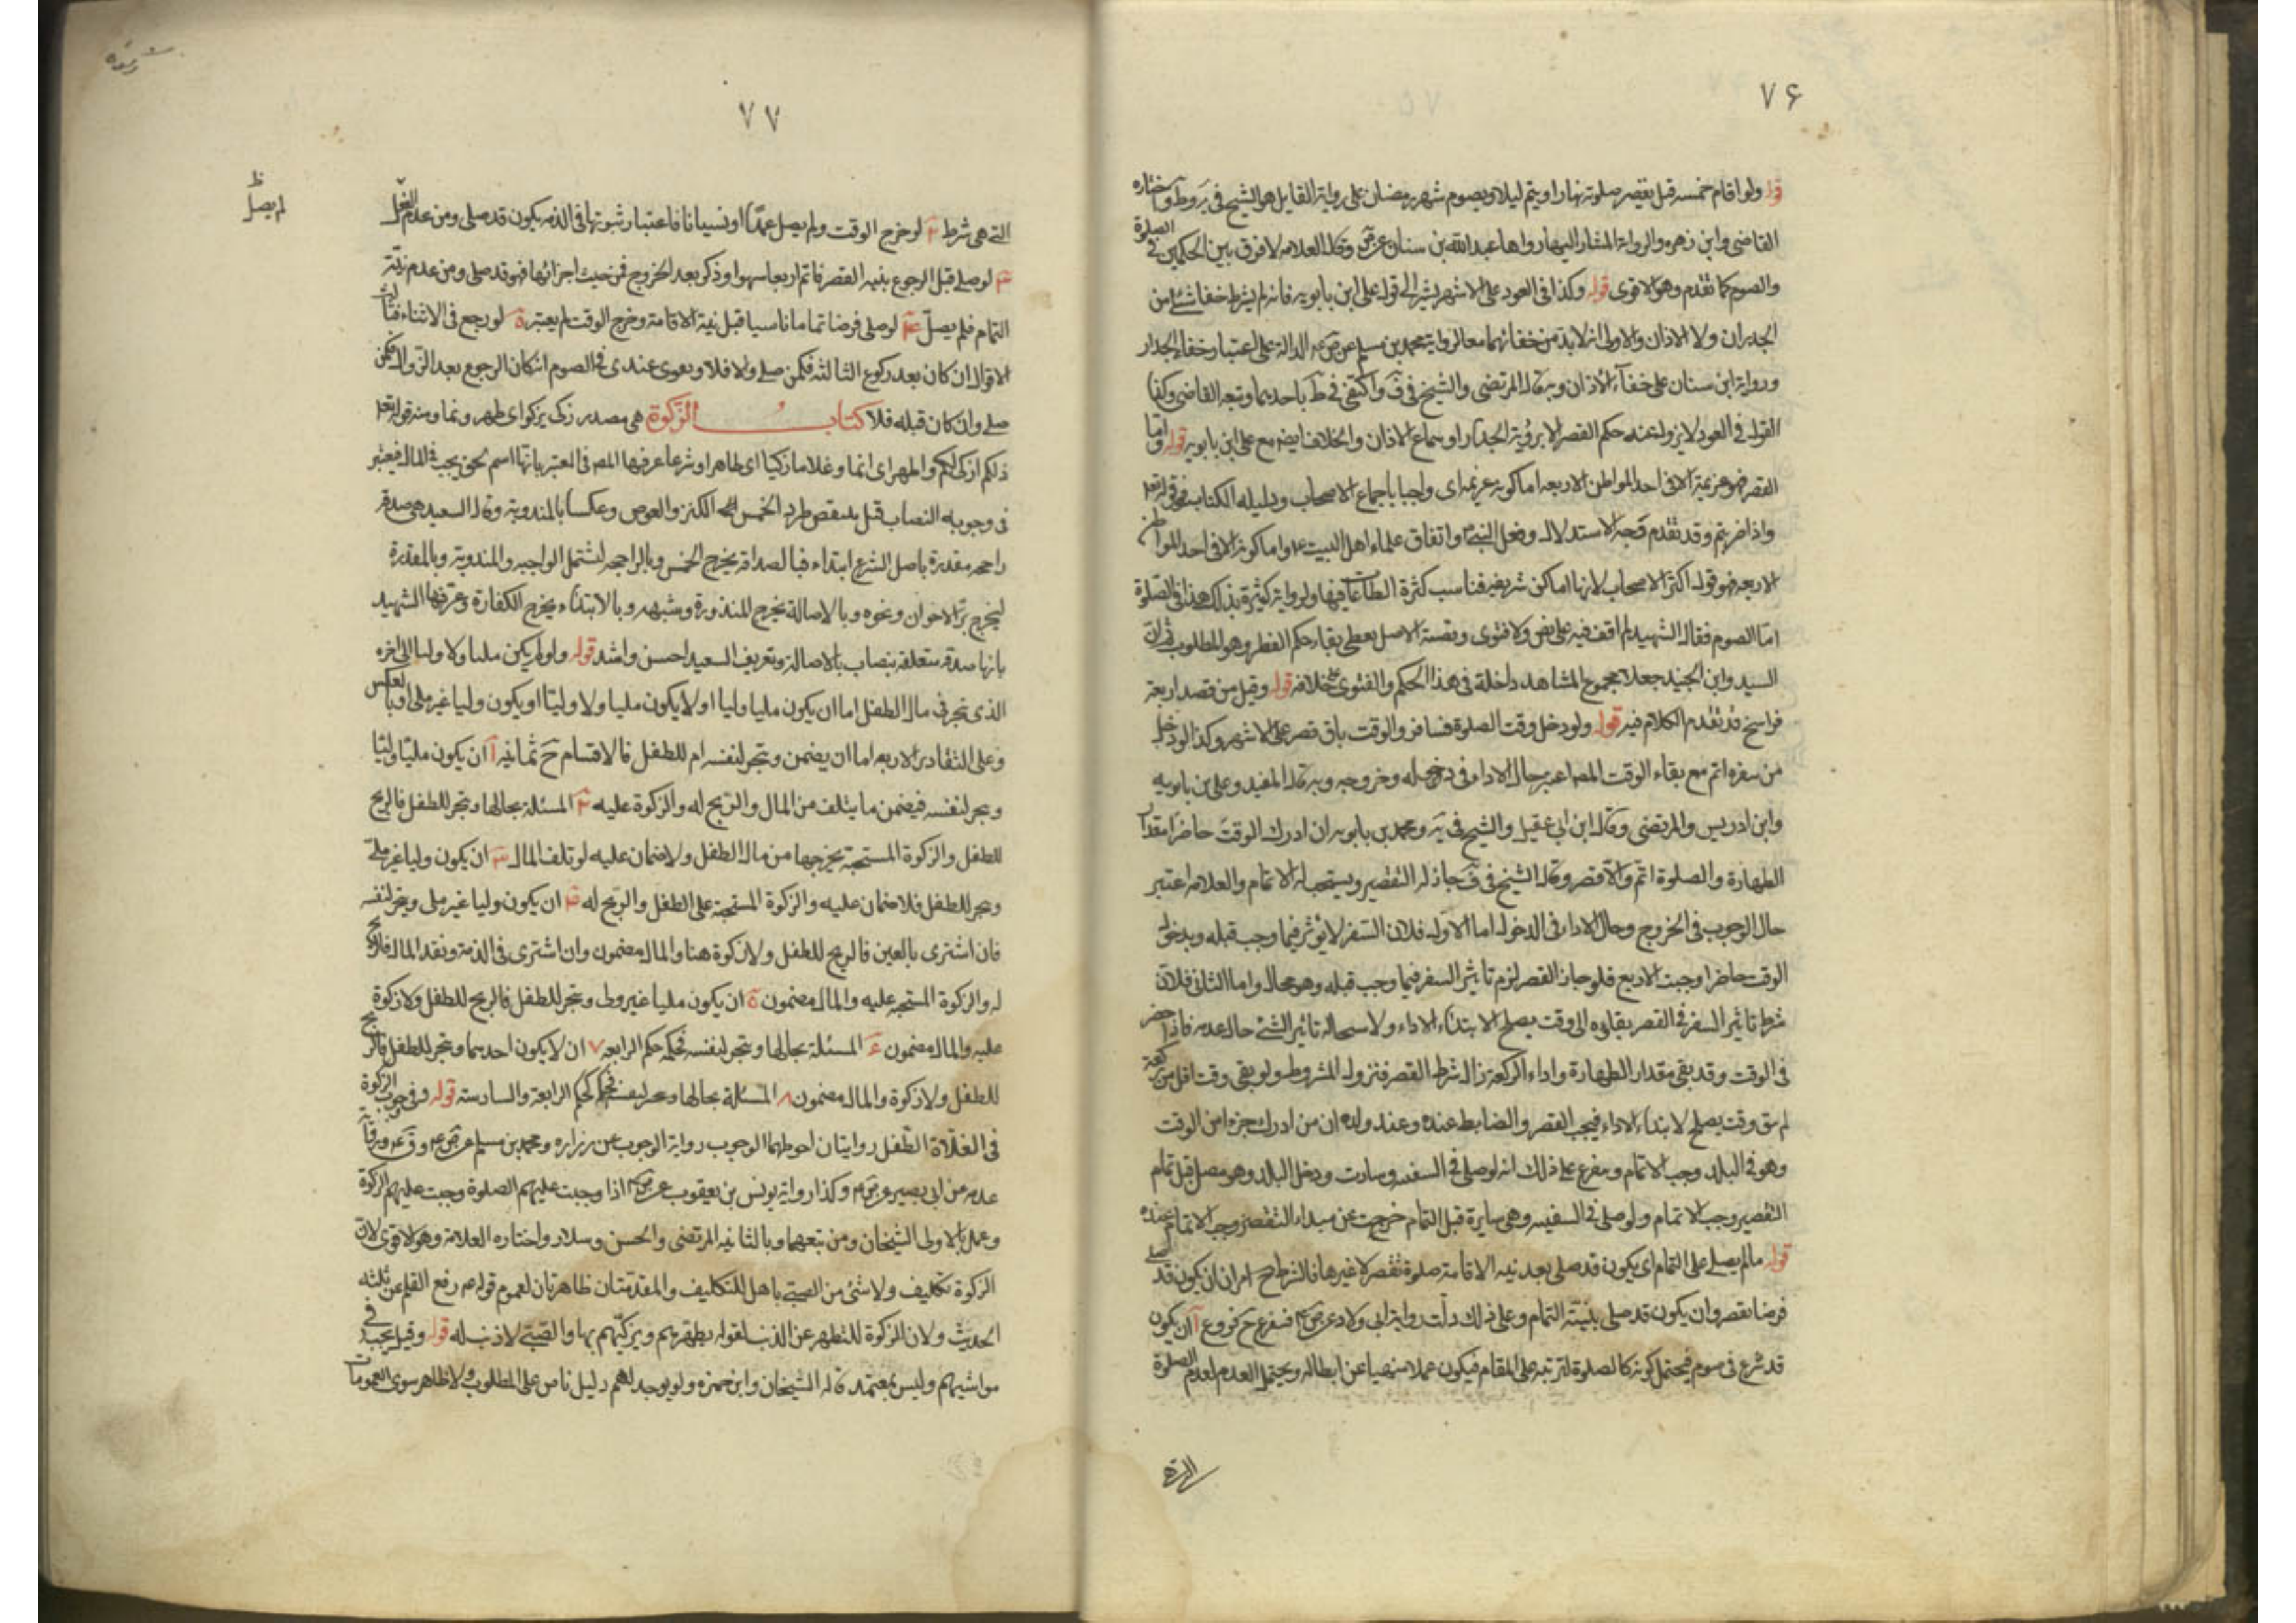 ٧۶
قوله ولو اقام خمسة قيل يقصر صلوته نهارا ويتم ليلا ويصوم شهر رمضان على رواية القايل هو الشيخ في يه وط واختاره
القاضي وابن زهره والرواية المشار اليها رواها عبد الله بن سنان عن ص وقال العلامه لا فرق بين الحكمين في الصلوة
والصوم كما تقدم وهو الاقوى قوله وكذا في العود على الاشهر يشير الى قول علي ابن بابويه فانه لم يشترط خفا شئ من
الجدران ولا الاذان والاولى انه لابد من خفائهما معا لرواية محمد بن مسلم عن ص عه الدالة على اعتبار خفاء الجدار
ورواية ابن سنان على خفاء الاذان وبه قال المرتضى والشيخ في ف واكتفى في ط باحدهما وتبعه القاضي وكذا
القول في العود لا يزول عنه حكم القصر الا برؤية الجدار او سماع الاذان والخلاف ايضا مع علي ابن بابويه قوله واما
القصر فهو عزيمة الا في احد المواطن الاربعه اما كونه عزيمه اى واجبا باجماع الاصحاب ودليله الكتاب قوله تعلى
واذا ضربتم وقد تقدم وجه الاستدلال وفعل النبي واتفاق علماء اهل البيت ع واما كونه الا في احد المواطن
الاربعه فهو قول اكثر الاصحاب لانها اماكن شريفه فناسب كثرة الطاعات فيها ولرواية كثيرة بذلك هذا في الصلوة
اما الصوم فقال الشهيد لم اقف فيه على نص ولا فتوى وقضية الاصل يعطي بقاء حكم الفطر وهو المطلوب
السيد وابن الجنيد جعلا مجموع المشاهد داخلة في هذا الحكم والفتوى على خلافه قوله وقيل من قصد اربعة
فراسخ قد تقدم الكلام فيه قوله ولو دخل وقت الصلوة فسافر والوقت باق قصر على الاشهر وكذا لو دخل
من سفره اتم مع بقاء الوقت المص اعتبر حال الاداء في دخوله وخروجه وبه قال المفيد وعلي بن بابويه
وابن ادريس والمرتضى وقال ابن ابي عقيل والشيخ في يه ومحمد بن بابويه ان ادرك الوقت حاضرا مقدار
الطهارة والصلوة اتم والا قصر وقال الشيخ في ف جاز له التقصير ويستحب له الاتمام والعلامه اعتبر
حال الوجوب في الخروج وحال الاداء في الدخول اما الاول فلان السفر لا يؤثر فيما وجب قبله وبدخول
الوقت حاضرا وجبت الاربع فلو جاز القصر لزم تاثير السفر فيما وجب قبله وهو محال واما الثاني فلان
شرط تاثير السفر في القصر بقاؤه الى وقت يصلح لابتداء الاداء ولاستحاله تاثير الشئ حال عدمه فاذا حضر
في الوقت وقد بقى مقدار الطهارة واداء الركعة زال شرط القصر فنزول المشروط ولو بقي وقت اقل من ركعة
لم يبق وقت يصلح لابتداء الاداء فيجب القصر والضابط عنده وعند ولده ان من ادرك جزءا من الوقت
وهو في البلد وجب الاتمام ويفرع على ذلك انه لو صلى في السفينه وسارت ودخل البلد وهو مصل قبل تمام
التقصير وجب الاتمام ولو صلى في السفينه وهي سايرة قبل التمام خرجت عن مبداء التقصير وجب الاتمام عنده
قوله ما لم يصل على التمام اى يكون قد صلى بعد نيه الاقامة صلوة تقصر لا غيرها فالشرط ح امران ان يكون قد صلى
فرضا يقصر وان يكون قد صلى بنية التمام وعلى ذلك دلت رواية ابي ولاد عن ص فيفرع ح فروع آ ان يكون
قد شرع في صوم فيحتمل كونه كالصلوة لترتبه على المقام فيكون عملا منهيا عن ابطاله ويحتمل العدم لعدم الصلوة
التي هي
٧٧
التي هي شرط ب لو خرج الوقت ولم يصل عمدا او نسيانا فاعتبار ثبوتها في الذمه يكون قد صلى ومن عدم الفعل
لم يصل ظ
ج لو صلى قبل الرجوع بنيه القصر فاتم اربعا سهوا وذكر بعد الخروج فمن حيث اجزائها فهو قد صلى ومن عدم نية
التمام فلم يصل د لو صلى فرضا تماما ناسيا قبل نية الاقامة وخرج الوقت لم يعتبر ه لو رجع في الاثناء فثالث
الاقوال ان كان بعد ركوع الثالثه فكمن صلى والا فلا ويقوى عندى في الصوم ان كان الرجوع بعد الزوال فكمن
صلى وان كان قبله فلا كتاب الزكوة هي مصدر زكى يزكو اى طهر ونما ومنه قوله تعلى
ذلكم ازكى لكم واطهر اى انما وغلاما زكيا اى طاهرا وشرعا عرفها المص في المعتبر بانها اسم لحق يجب في المال فيعتبر
في وجوبه النصاب قيل ينتقص طردا بخمس الكنز والغوص وعكسا بالمندوبة وقال السعيد هي صدقه
راجحه مقدرة باصل الشرع ابتداء فبالصدقه يخرج الخمس وبالراجحه لتشتمل الواجبه والمندوبة وبالمقدرة
ليخرج بر الاخوان ونحوه وبالاصالة يخرج المنذورة وشبهه وبالابتداء يخرج الكفارة وعرفها الشهيد
بانها صدقه متعلقه بنصاب بالاصالة وتعريف السعيد احسن واشد قوله ولو لم يكن مليا ولا وليا الى اخره
الذى يتجر في مال الطفل اما ان يكون مليا وليا او لا يكون مليا ولا وليا او يكون وليا غير ملي او بالعكس
وعلى التقادير الاربعه اما ان يضمن ويتجر لنفسه ام للطفل فالاقسام ح ثمانيه آ ان يكون مليا وليا
ويتجر لنفسه فيضمن ما يتلف من المال والربح له والزكوة عليه ب المسئلة بحالها ويتجر للطفل فالربح
للطفل والزكوة المستحبة يخرجها من مال الطفل ولا ضمان عليه لو تلف المال ج ان يكون وليا غير ملي
ويتجر للطفل فلا ضمان عليه والزكوة المستحبة على الطفل والربح له د ان يكون وليا غير ملى ويتجر لنفسه
فان اشترى بالعين فالربح للطفل ولا زكوة هنا والمال مضمون وان اشترى في الذمة ونقد المال فالربح
له والزكوة المستحبه عليه والمال مضمون ه ان يكون مليا غير ولي ويتجر للطفل فالربح للطفل ولا زكوة
عليه والمال مضمون و المسئلة بحالها ويتجر لنفسه فحكمه حكم الرابعه ٧ ان لا يكون احدهما ويتجر للطفل فالربح
للطفل ولا زكوة والمال مضمون ٨ المسئلة بحالها ويتجر لنفسه فحكمه كحكم الرابعة والسادسة قوله وفي وجوب الزكوة
في الغلاة الطفل روايتان احوطهما الوجوب رواية الوجوب عن زراره ومحمد بن مسلم عن ص عه و ق ع ورواية
عدمه عن ابي بصير عن ص ع وكذا رواية يونس بن يعقوب عن ص اذا وجبت عليهم الصلوة وجبت عليهم الزكوة
وعمل بالاولى الشيخان ومن تبعهما وبالثانيه المرتضى والحسن وسلار واختاره العلامة وهو الاقوى لان
الزكوة تكليف ولا شئ من الصبي باهل للتكليف والمقدمتان ظاهرتان لعموم قوله ع رفع القلم عن ثلثه
الحديث ولان الزكوة للتطهر عن الذنب لقوله يطهرهم ويزكيهم بها والصبي لا ذنب له قوله وقيل يجب في
مواشيهم وليس بمعتمد قاله الشيخان وابن حمزه ولم يوجد لهم دليل ناص على المطلوب ولا ظاهر سوى العمومات